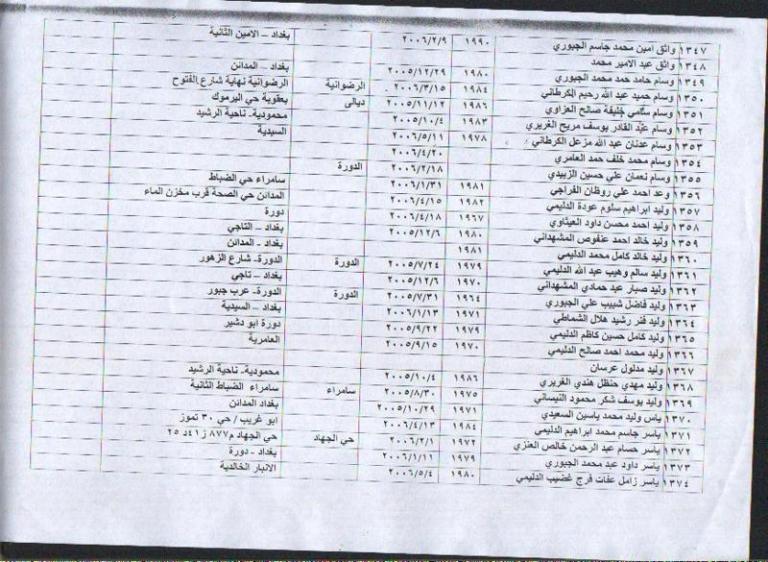 ١٣٤٧ واثق امين محمد جاسم الجبوري ١٩٩٠ ٢٠٠٦/٢/٩ بغداد – الامين الثانية
١٣٤٨ واثق عبد الامير محمد
١٣٤٩ وسام حامد حمد محمد الجبوري ١٩٨٠ ٢٠٠٥/١٢/٢٩ بغداد – المدائن
١٣٥٠ وسام حميد عبد الله رحيم الكرطاني ١٩٨٤ ٢٠٠٦/٣/١٥ الرضوانية الرضوانية نهاية شارع الفتوح
١٣٥١ وسام سامي خليفة صالح العزاوي ١٩٨٦ ٢٠٠٥/١١/١٢ ديالى بعقوبة حي اليرموك
١٣٥٢ وسام عبد القادر يوسف مريح الغريري ١٩٨٣ ٢٠٠٥/١٠/٤ محمودية- ناحية الرشيد
١٣٥٣ وسام عدنان عبد الله مزعل الكرطاني ١٩٧٨ ٢٠٠٦/٥/١١ السيدية
١٣٥٤ وسام محمد خلف حمد العامري ٢٠٠٦/٤/٢٠
١٣٥٥ وسام نعمان علي حسين الزبيدي ٢٠٠٦/٢/١٨ الدورة
١٣٥٦ وعد احمد علي روظان الفراجي ١٩٨١ ٢٠٠٦/١/٣١ سامراء حي الضباط
١٣٥٧ وليد ابراهيم سلوم عودة الدليمي ١٩٨٢ ٢٠٠٦/٤/١٥ المدائن حي الصحة قرب مخزن الماء
١٣٥٨ وليد احمد محسن داود العيثاوي ١٩٦٧ ٢٠٠٦/٤/١٨ دورة
١٣٥٩ وليد خالد احمد عنفوص المشهداني ١٩٨٠ ٢٠٠٥/١٢/٦ بغداد – التاجي
١٣٦٠ وليد خالد كامل محمد الدليمي ١٩٨١ بغداد - المدائن
١٣٦١ وليد سالم وهيب عبد الله الدليمي ١٩٧٩ ٢٠٠٥/٧/٢٤ الدورة الدورة- شارع الزهور
١٣٦٢ وليد صبار عبد حمادي المشهداني ١٩٧٠ ٢٠٠٥/١٢/٦ بغداد – تاجي
١٣٦٣ وليد فاضل شبيب علي الجبوري ١٩٦٤ ٢٠٠٥/٧/٣١ الدورة الدورة- عرب جبور
١٣٦٤ وليد فنر رشيد هلال الشماطي ١٩٧١ ٢٠٠٦/١/١٣ بغداد – السيدية
١٣٦٥ وليد كامل حسين كاظم الدليمي ١٩٧٩ ٢٠٠٥/٩/٢٢ دورة ابو دشير
١٣٦٦ وليد محمد احمد صالح الدليمي ١٩٧٠ ٢٠٠٥/٩/١٥ العامرية
١٣٦٧ وليد مدلول عرسان
١٣٦٨ وليد مهدي حنظل هندي الغريري ١٩٨٦ ٢٠٠٥/١٠/٤ محمودية- ناحية الرشيد
١٣٦٩ وليد يوسف شكر محمود النيساني ١٩٧٥ ٢٠٠٥/٨/٣٠ سامراء سامراء الضباط الثانية
١٣٧٠ ياس وليد محمد ياسين السعيدي ١٩٧١ ٢٠٠٥/١٠/٢٩ بغداد المدائن
١٣٧١ ياسر جاسم محمد ابراهيم الدليمي ١٩٨٤ ٢٠٠٦/٤/١٣ ابو غريب / حي ٣٠ تموز
١٣٧٢ ياسر حسام عبد الرحمن خالص العنزي ١٩٧٢ ٢٠٠٦/٢/١ حي الجهاد حي الجهاد م٨٧٧ ز٤١د ٢٥
١٣٧٣ ياسر داود عبد محمد الجبوري ١٩٧٩ ٢٠٠٦/١/١١ بغداد - دورة
١٣٧٤ ياسر زامل عفات فرج غضيب الدليمي ١٩٨٠ ٢٠٠٦/٥/٤ الانبار الخالدية